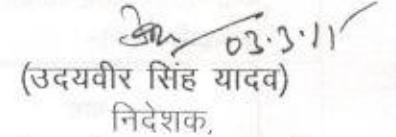 03.3.11
(उदयवीर सिंह यादव)
निदेशक,